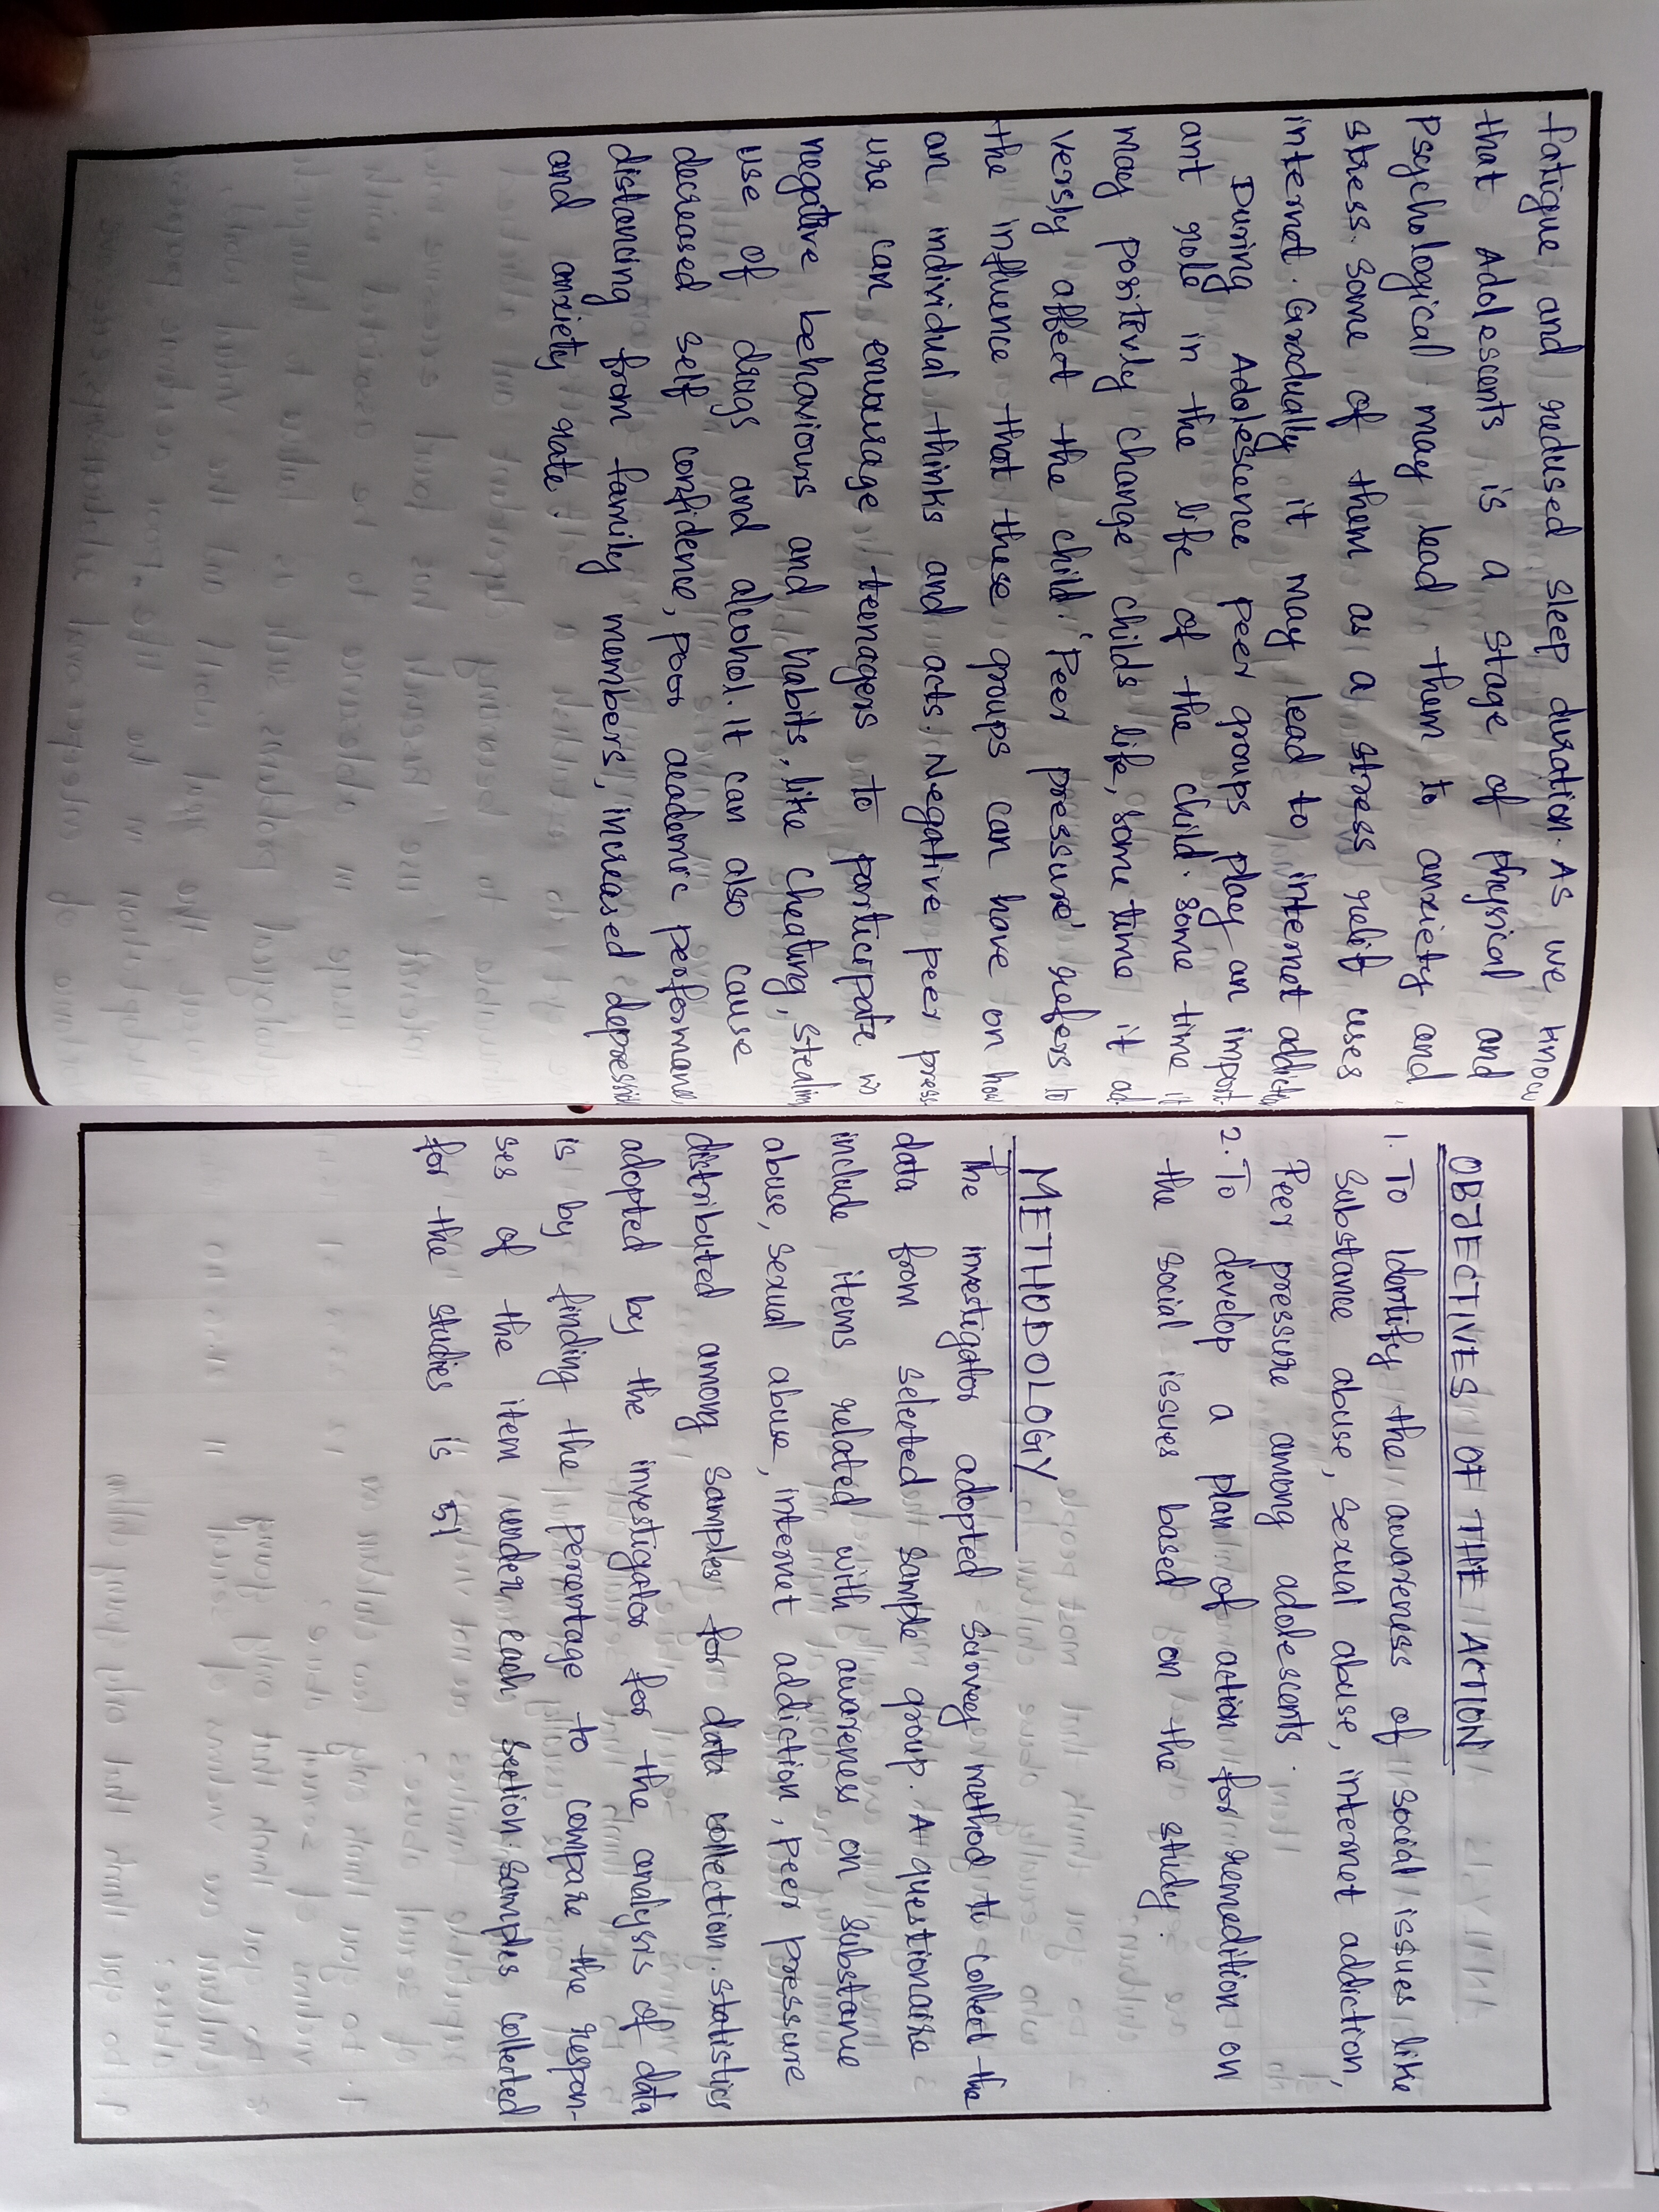 fatigue and redused sleep duration. As we know
that Adolescents is a stage of physical and
Psychological may lead them to anxiety and
stress. Some of them as a stress relif uses
internet. Gradually it may lead to internet
During Adolescene peer groups play an import-
ant role in the life of the child. Some time it
may positevly change childs life, some time it ad-
versly affect the child. 'Peer pressure' refers to
the influence that these groups can have on how
an individual thinks and acts. Negative peer press-
ure can encourage teenagers to participate in
negative behaviours and habits, like cheating, stealing
use of drugs and alcohol. It can also cause
decreased self confidence, poor academic performance
distancing from family members, increased depression
and anxiety rate.
OBJECTIVES OF THE ACTION
1. To Identify the awareness of social issues like
Substance abuse, sexual abuse, internet addiction,
Peer pressure among adolescents.
2. To develop a plan of action for remedition on
the social issues based on the study.
METHODOLOGY
The investigator adopted survey method to collect the
data from selected sample group. A questionaire
include items related with awareness on substance
abuse, sexual abuse, internet addiction, peer pressure
distributed among samples for data collection. statistics
adopted by the investigator for the analysis of data
is by finding the percentage to compare the respon-
ses of the item under each section. Samples collected
for the studies is 51